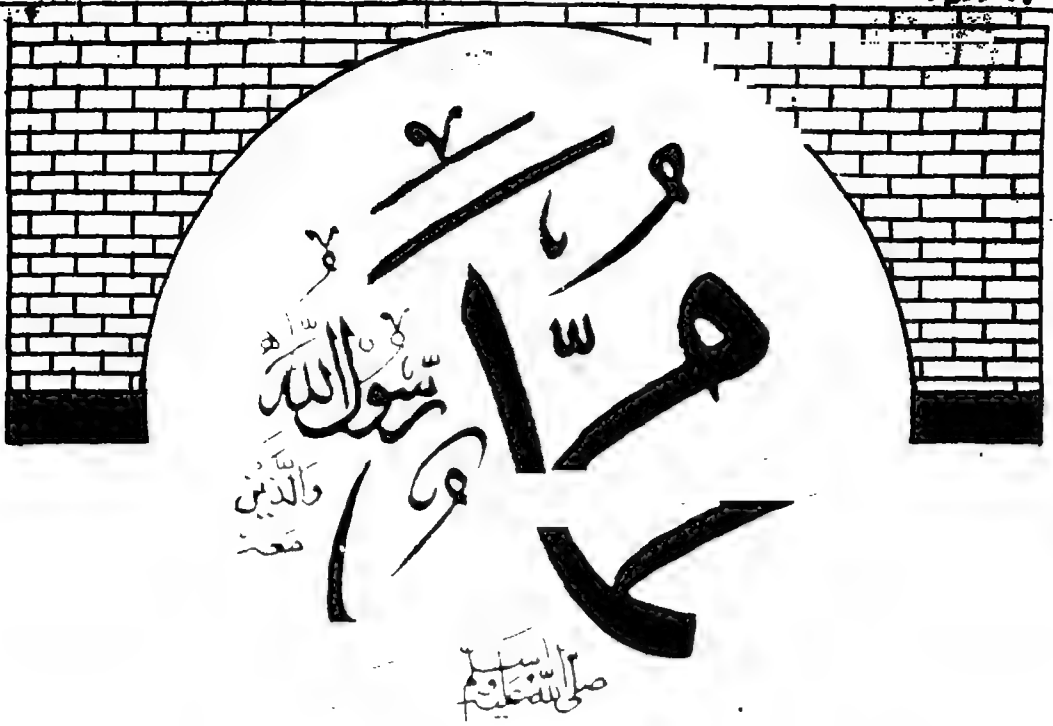 مُحَمَّدٌ
رَّسُوْلُ اللّٰهِ
وَالَّذِيْنَ
مَعَهٗ
صلى الله عليه وسلم